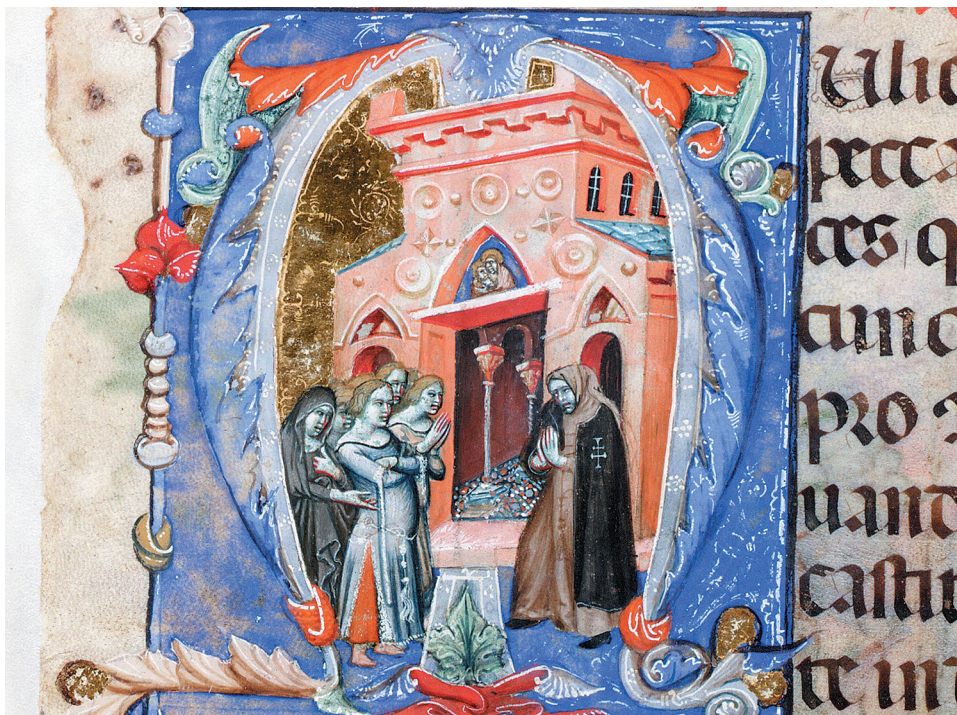 pecca
ces q
cunc
pro
uand
castit
te in